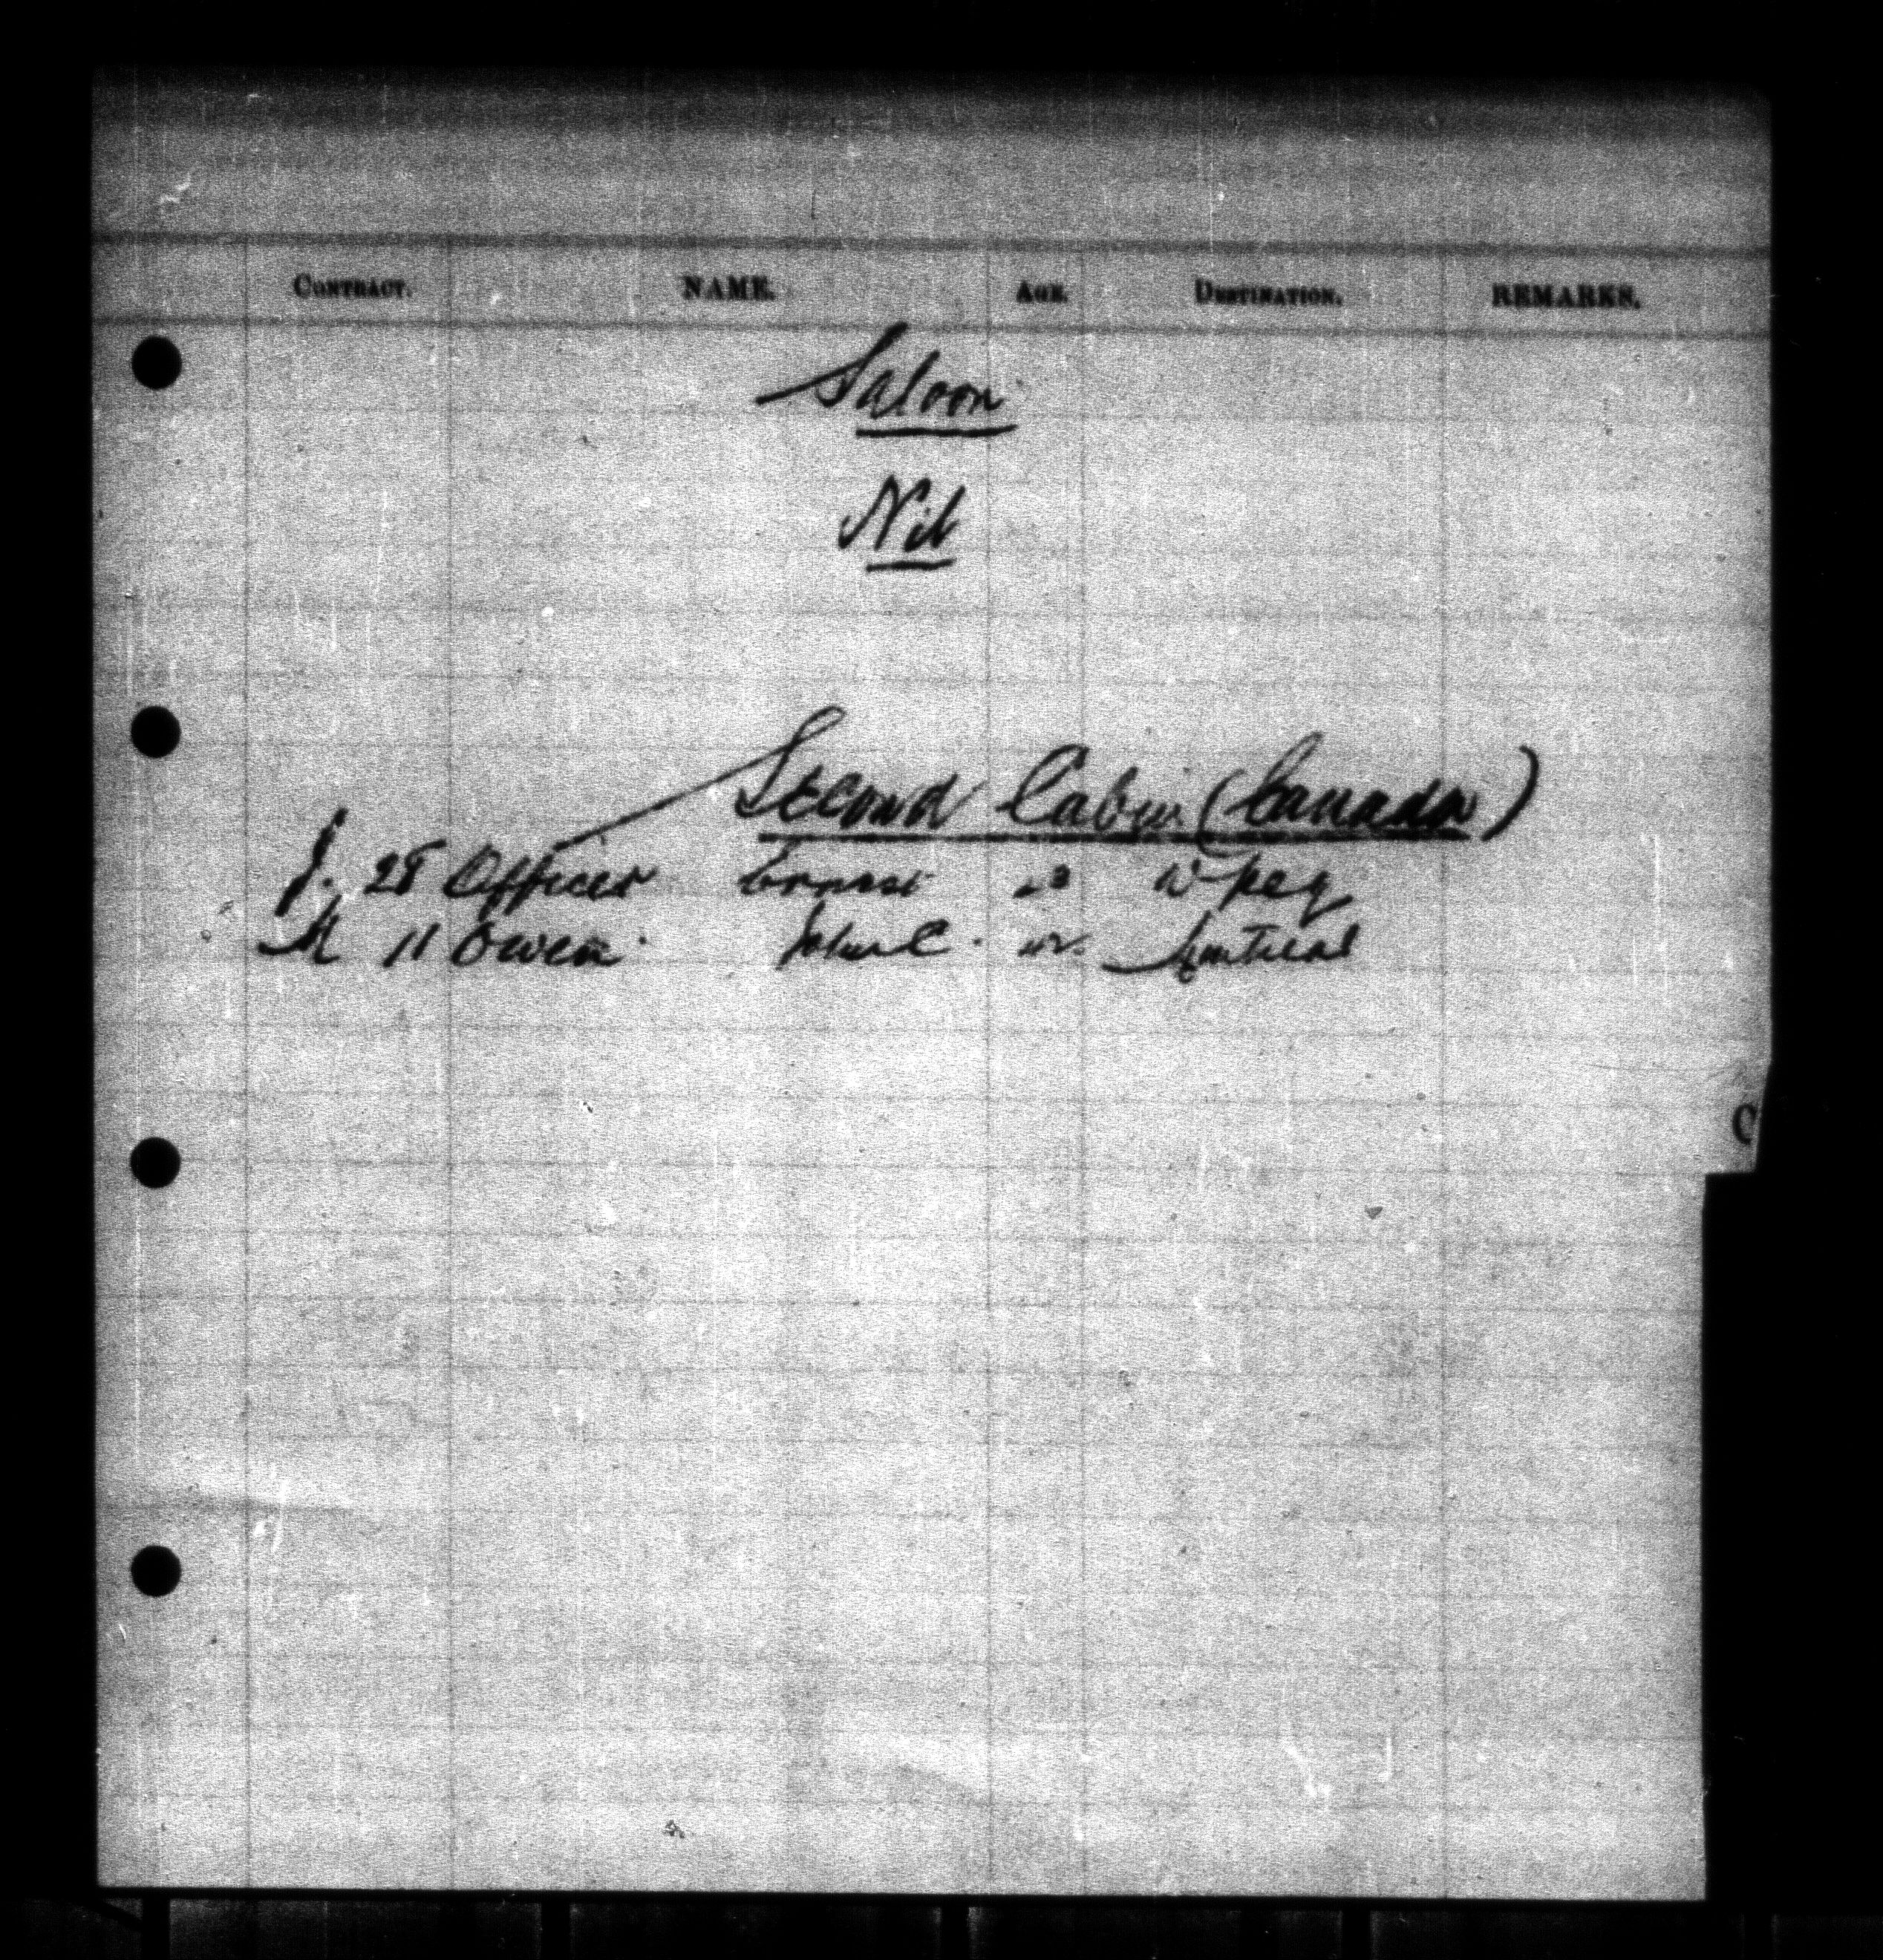 CONTRACT. NAME. AGE. DESTINATION. REMARKS.
Saloon
Nil
Second Cabin (Canada)
J. 28 Officer Ernest 23 W'peg
M 11 Owen John C. Montreal
C